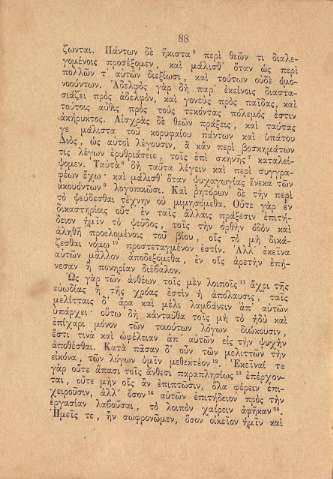 88
ζωνται. Πάντων δὲ ἥκιστα περὶ θεῶν τι διαλε-
γομένοις προσέξομεν, καὶ μάλισθ᾽ ὅταν ὡς περὶ
πολλῶν τ᾽ αὐτῶν διεξίωσι, καὶ τούτων οὐδὲ ὁμο-
νοούντων. Ἀδελφὸς γὰρ δὴ παρ᾽ ἐκείνοις διαστα-
σιάζει πρὸς ἀδελφόν, καὶ γονεὺς πρὸς παῖδας, καὶ
τούτοις αὖθις πρὸς τοὺς τεκόντας πόλεμός ἐστιν
ἀκήρυκτος. Αἰσχρὰς δὲ θεῶν πράξεις, καὶ ταύτας
γε μάλιστα τοῦ κορυφαίου πάντων καὶ ὑπάτου
Διός, ὡς αὐτοὶ λέγουσιν, ἃ κἂν περὶ βοσκημάτων
τις λέγων ἐρυθριάσειε, τοῖς ἐπὶ σκηνῆς καταλεί-
ψομεν. Ταὐτὰ δὴ ταῦτα λέγειν καὶ περὶ συγγρα-
φέων ἔχω· καὶ μάλισθ᾽ ὅταν ψυχαγωγίας ἕνεκα τῶν
ἀκουόντων λογοποιῶσι. Καὶ ῥητόρων δὲ τὴν περὶ
τὸ ψεύδεσθαι τέχνην οὐ μιμησόμεθα. Οὔτε γὰρ ἐν
δικαστηρίοις οὔτ᾽ ἐν ταῖς ἄλλαις πράξεσιν ἐπιτή-
δειον ἡμῖν τὸ ψεῦδος, τοῖς τὴν ὀρθὴν ὁδὸν καὶ
ἀληθῆ προελομένοις τοῦ βίου, οἷς τὸ μὴ δικά-
ζεσθαι νόμῳ 10 προστεταγμένον ἐστίν. Ἀλλ᾽ ἐκεῖνα
αὐτῶν μᾶλλον ἀποδεξόμεθα, ἐν οἷς ἀρετὴν ἐπῄ-
νεσαν ἢ πονηρίαν διέβαλον.
Ὡς γὰρ τῶν ἀνθέων τοῖς μὲν λοιποῖς 11 ἄχρι τῆς
εὐωδίας ἢ τῆς χρόας ἐστὶν ἡ ἀπόλαυσις, ταῖς
μελίτταις δ᾽ ἄρα καὶ μέλι λαμβάνειν ἀπ᾽ αὐτῶν
ὑπάρχει· οὕτω δὴ κἀνταῦθα τοῖς μὴ τὸ ἡδὺ καὶ
ἐπίχαρι μόνον τῶν τοιούτων λόγων διώκουσιν,
ἔστι τινὰ καὶ ὠφέλειαν ἀπ᾽ αὐτῶν εἰς τὴν ψυχὴν
ἀποθέσθαι. Κατὰ πᾶσαν δ᾽ οὖν τῶν μελιττῶν τὴν
εἰκόνα, τῶν λόγων ὑμῖν μεθεκτέον 12. Ἐκεῖναί τε
γὰρ οὔτε ἅπασι τοῖς ἄνθεσι παραπλησίως 13 ἐπέρχον-
ται, οὔτε μὴν οἷς ἂν ἐπιπτῶσιν, ὅλα φέρειν ἐπι-
χειροῦσιν, ἀλλ᾽ ὅσον 14 αὐτῶν ἐπιτήδειον πρὸς τὴν
ἐργασίαν λαβοῦσαι, τὸ λοιπὸν χαίρειν ἀφῆκαν 15.
Ἡμεῖς τε, ἢν σωφρονῶμεν, ὅσον οἰκεῖον ἡμῖν καὶ